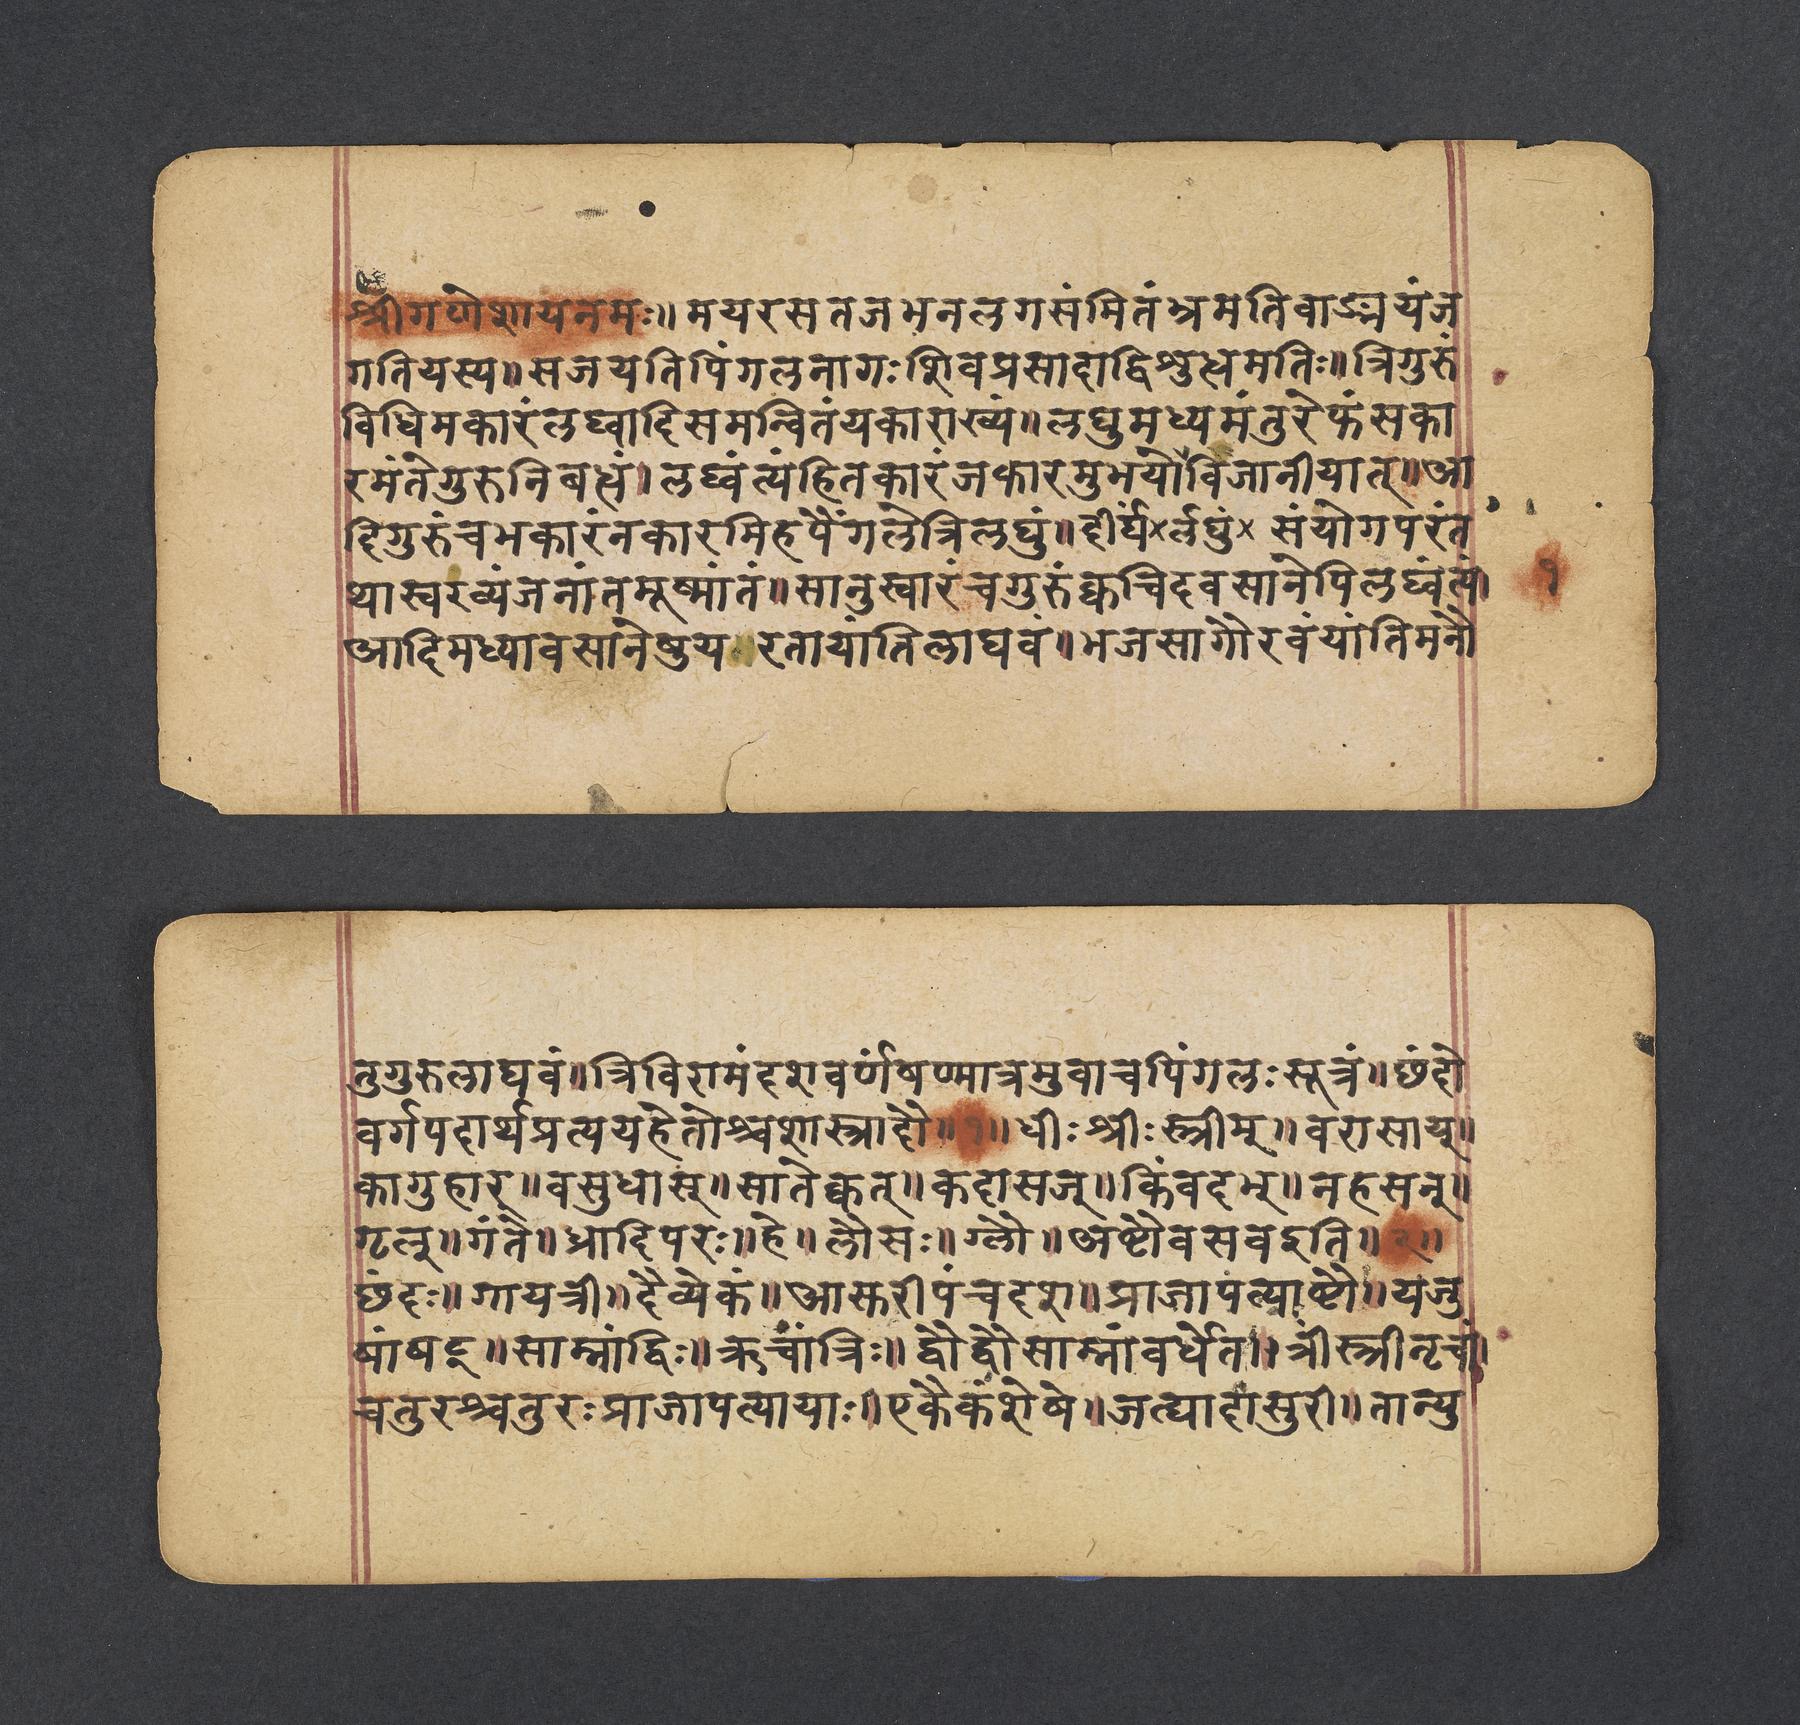 श्रीगणेशायनमः॥ मयरसतजभनलगसंमितंभ्रमतिवाङ्मयंज
गतियस्य॥सजयतिपिंगलनागःशिवप्रसादाद्विशुद्धमतिः॥त्रिगुरुं
विधिमकारंलघ्वादिसमन्वितंयकाराख्यं॥लघुमध्यमंतुरेफंसका
रमंतेगुरुनिबद्धं।लघ्वंत्यंहितकारंजकारमुभयोर्विजानीयात्॥आ
दिगुरुंचभकारंनकारमिहपैंगलेत्रिलघुं॥दीर्घं×र्लघुं× संयोगपरंत
थास्वरव्यंजनांतमूष्मांतं॥सानुस्वारंचगुरुंक्वचिदवसानेपिलघ्वंत्यं।
१
आदिमध्यावसानेषुय रतायांतिलाघवं॥भजसागौरवंयांतिमनौ
तुगुरुलाघवं॥त्रिविरामंदशवर्णंषण्मात्रमुवाचपिंगलःसूत्रं॥छंदो
वर्गपदार्थप्रत्ययहेतोश्चशास्त्रादौ॥१॥धीःश्रीःस्त्रीम्॥वरासाय्॥
कागुहार्॥वसुधास्॥सातेक्वत्॥कदासज्॥किंवदभ्॥नहसन्॥
गृल्॥गंते॥ध्रादिपरः॥हे॥लौसः॥ग्लौ॥अष्टौवसवइति॥२॥
छंदः॥गायत्री॥दैव्येकं॥आसुरीपंचदश॥प्राजापत्याष्टौ॥यजु
षांषट्॥साम्नांद्विः॥ऋचांत्रिः॥द्वौद्वौसाम्नांवर्धेत॥त्रींस्त्रीनृचां।
चतुरश्चतुरःप्राजापत्यायाः॥एकैकंशेषे॥जत्द्यादासुरी॥तान्यु